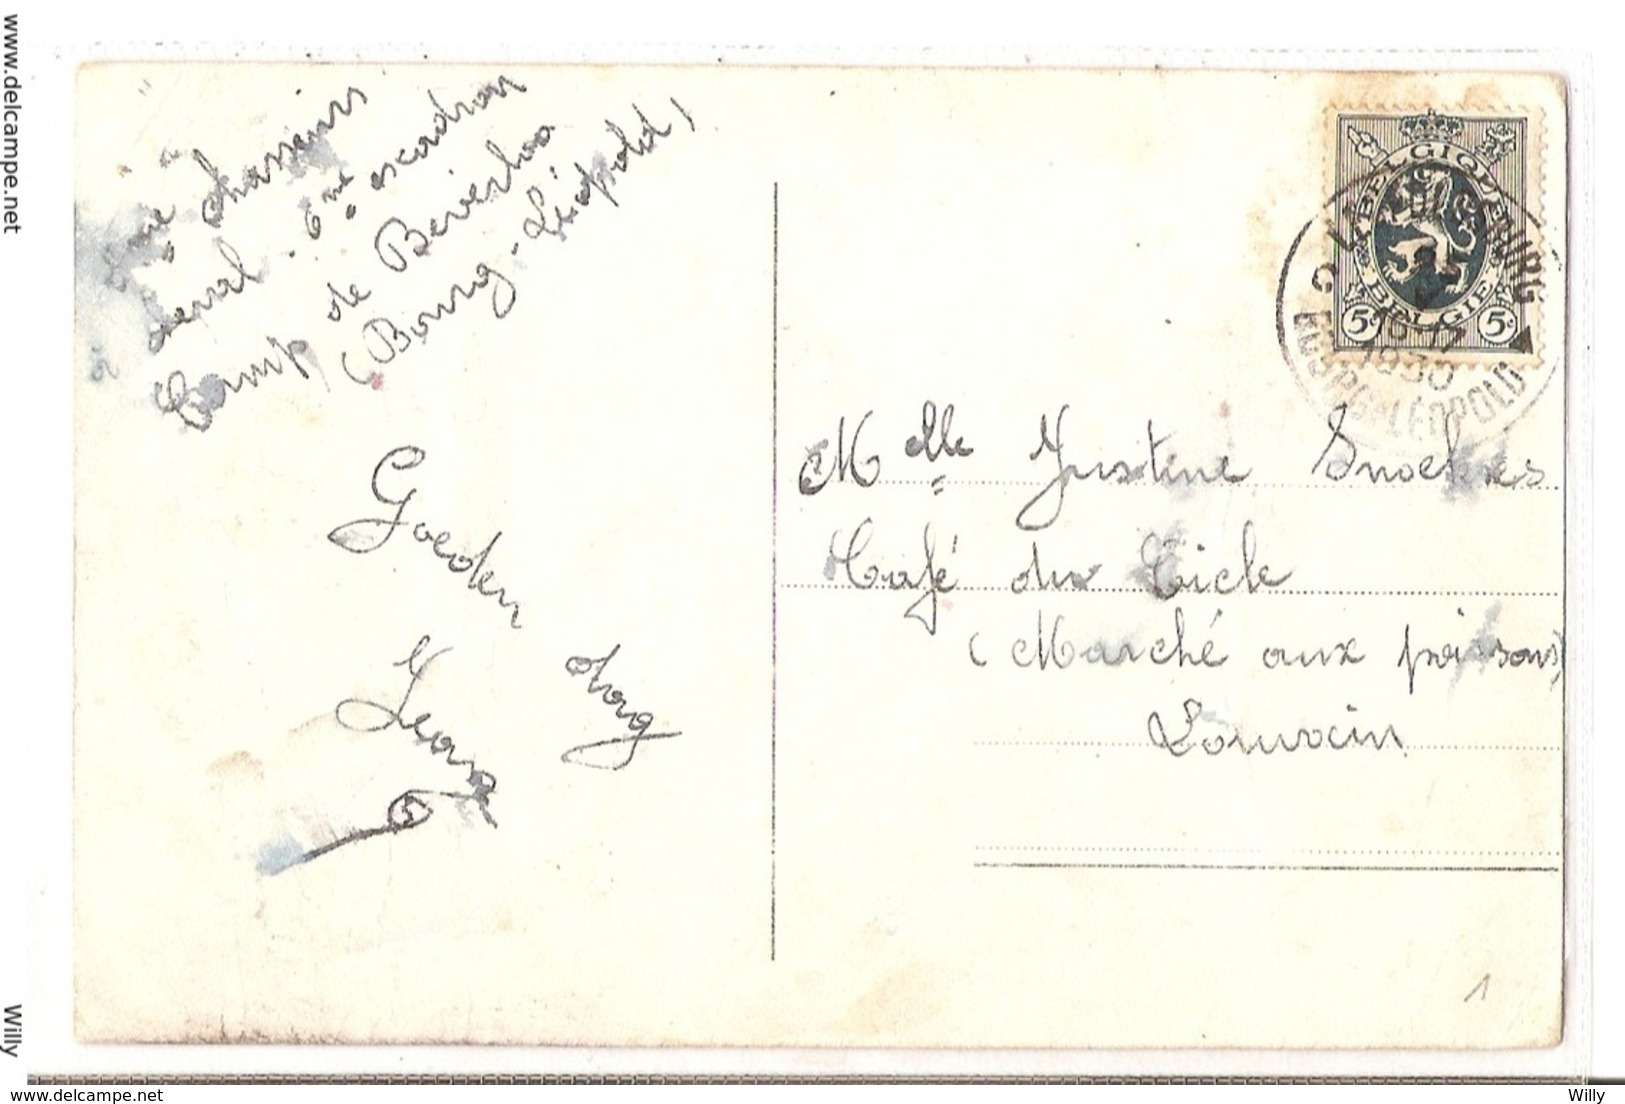 www.delcampe.net
Willy
à
2me chasseurs
à cheval. 6me escadron
Camp de Beverloo
(Bourg-Léopold)
Goeden dag
Jean
BELGIQUE
BELGIE
5c 5c
1930
BOURG-LÉOPOLD
Melle Justine Snoekx
Café du Cicle
(Marché aux poissons)
Louvain
1
www.delcampe.net
Willy